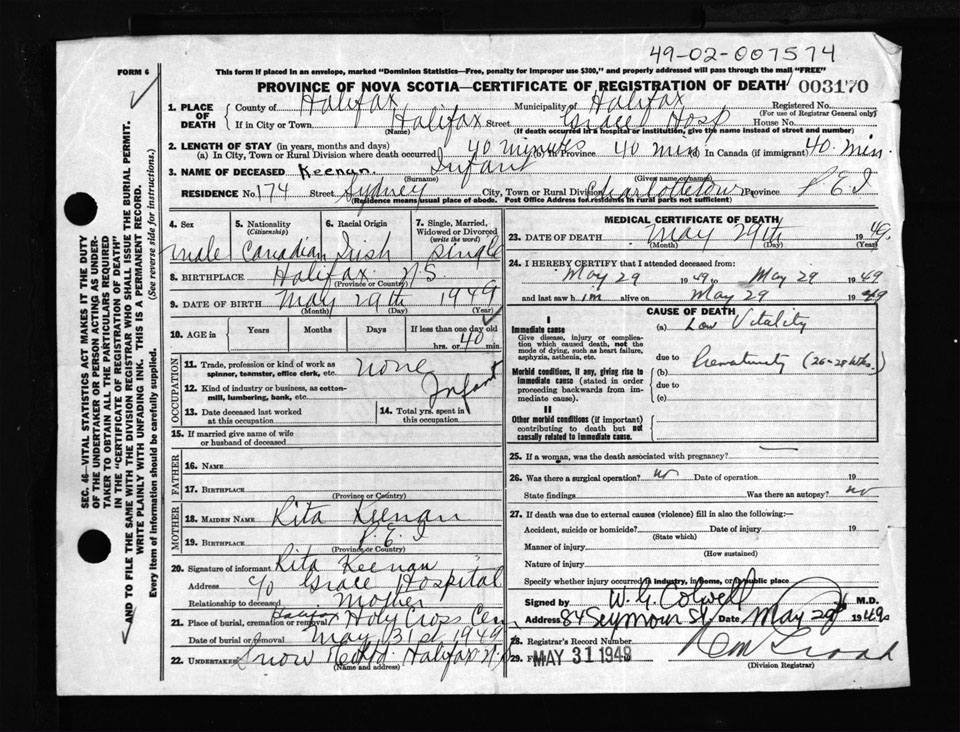 49-02-007574
FORM 6
This form if placed in an envelope, marked "Dominion Statistics—Free, penalty for improper use $300," and properly addressed will pass through the mail "FREE"
PROVINCE OF NOVA SCOTIA—CERTIFICATE OF REGISTRATION OF DEATH 003170
1. PLACE OF DEATH
County of Halifax Municipality of Halifax Registered No.
(For use of Registrar General only)
If in City or Town Halifax Street Grace Hosp House No.
(Name) (If death occurred in a hospital or institution, give the name instead of street and number)
2. LENGTH OF STAY (in years, months and days)
(a) In City, Town or Rural Division where death occurred 40 minutes (b) In Province 40 min (c) In Canada (if immigrant) 40 min
3. NAME OF DECEASED Keenan. Infant
(Surname) (Given name or names)
RESIDENCE No 174 Street Sydney City, Town or Rural Division Charlottetown Province P.E.I
(Residence means usual place of abode. Post Office Address for residents in rural parts not sufficient)
4. Sex
male
5. Nationality
(Citizenship)
Canadian
6. Racial Origin
Irish
7. Single, Married, Widowed or Divorced
(write the word)
Single
8. BIRTHPLACE Halifax N S
(Province or Country)
9. DATE OF BIRTH May 29th 1949
(Month) (Day) (Year)
10. AGE in Years Months Days If less than one day old
hrs. or 40 min.
OCCUPATION
11. Trade, profession or kind of work as spinner, teamster, office clerk, etc. none
12. Kind of industry or business, as cotton-mill, lumbering, bank, etc. Infant
13. Date deceased last worked at this occupation
14. Total yrs. spent in this occupation
15. If married give name of wife or husband of deceased
FATHER
16. NAME
17. BIRTHPLACE
(Province or Country)
MOTHER
18. MAIDEN NAME Rita Keenan
19. BIRTHPLACE P.E.I
(Province or Country)
20. Signature of informant Rita Keenan
Address c/o Grace Hospital
Relationship to deceased Mother
21. Place of burial, cremation or removal Holy Cross Cem
Date of burial or removal May 31st 1949
22. UNDERTAKER Snow & Co Ltd. Halifax N.S
(Name and address)
MEDICAL CERTIFICATE OF DEATH
23. DATE OF DEATH May 29th 1949
(Month) (Day) (Year)
24. I HEREBY CERTIFY that I attended deceased from:
May 29 1949 to May 29 1949
and last saw him alive on May 29 1949
CAUSE OF DEATH
I
Immediate cause
Give disease, injury or complication which caused death, not the mode of dying, such as heart failure, asphyxia, asthenia, etc.
(a) Low Vitality
due to
Morbid conditions, if any, giving rise to immediate cause (stated in order proceeding backwards from immediate cause).
(b) Prematurity (26-28 wks.)
due to
(c)
II
Other morbid conditions (if important) contributing to death but not causally related to immediate cause.
25. If a woman, was the death associated with pregnancy?
26. Was there a surgical operation? no Date of operation 19
State findings Was there an autopsy? no
27. If death was due to external causes (violence) fill in also the following:—
Accident, suicide or homicide? Date of injury 19
(State which)
Manner of injury
(How sustained)
Nature of injury
Specify whether injury occurred in industry, in home, or in public place
Signed by W. G. Colwell M.D.
Address 84 Seymour St. Date May 29 1949
28. Registrar's Record Number
29. Filed MAY 31 1949
(Division Registrar)
SEC. 46—VITAL STATISTICS ACT MAKES IT THE DUTY
OF THE UNDERTAKER OR PERSON ACTING AS UNDER-
TAKER TO OBTAIN ALL THE PARTICULARS REQUIRED
IN THE "CERTIFICATE OF REGISTRATION OF DEATH"
AND TO FILE THE SAME WITH THE DIVISION REGISTRAR WHO SHALL ISSUE THE BURIAL PERMIT.
WRITE PLAINLY WITH UNFADING INK. THIS IS A PERMANENT RECORD.
Every item of information should be carefully supplied. (See reverse side for instructions.)